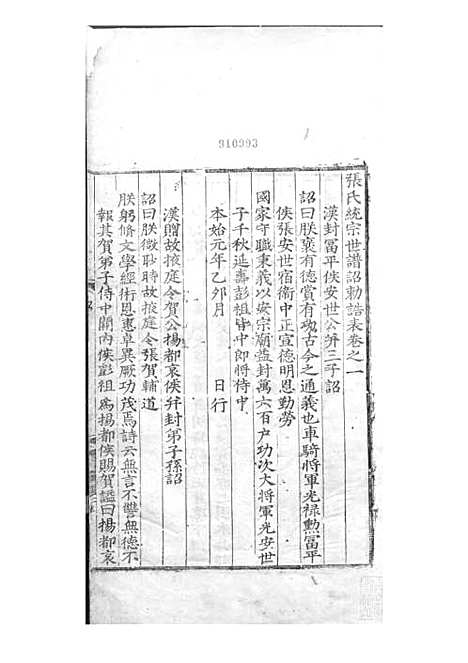 910993
張氏統宗世譜詔勅誥表卷之一
漢封冨平侯安世公并三子詔
詔曰朕襃有德賞有功古今之通義也車騎將軍光禄勲冨平
侯張安世宿衛中正宣德明恩勤勞
國家守職秉義以安宗廟益封萬六百户功次大將軍光安世
子千秋延壽彭祖皆中郎將侍中
本始元年乙夘月　日行
漢贈故掖庭令賀公揚都哀侯并封弟子孫詔
詔曰朕微眇時故掖庭令張賀輔道
朕躬脩文學經術恩惠卓異厥功茂焉詩云無言不讐無德不
報其賀弟子侍中關內侯彭祖為揚都侯賜賀謚曰揚都哀